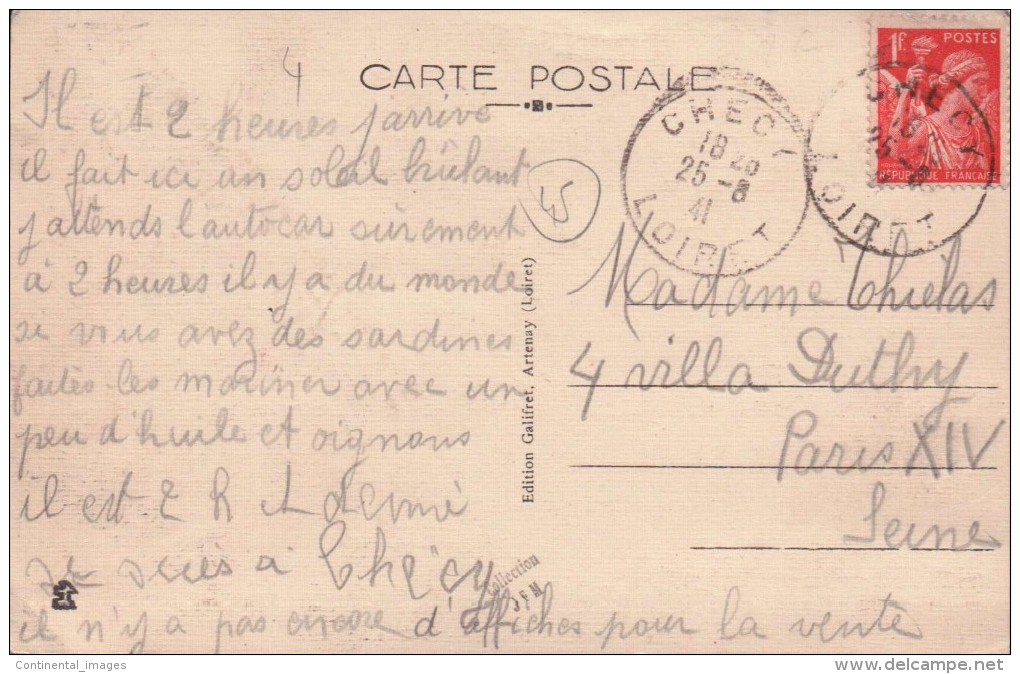 4
CARTE POSTALE
Il est 2 heures j'arrive
il fait ici un soleil brûlant
j'attends l'autocar sûrement
à 2 heures il y a du monde
si vous avez des sardines
faites les mariner avec un
peu d'huile et oignons
il est 2 h et demi
je suis à Chécy
il n'y a pas encore d'affiches pour la vente
53
Edition Galifret, Artenay (Loiret)
Collection
JFN
1F. POSTES
RÉPUBLIQUE FRANÇAISE
CHECY
18 20
25 -8
41
LOIRET
CHECY
18
25 -8
LOIRET
Madame Thielas
4 villa Duthy
Paris XIV
Seine
Continental_images
delcampe.net